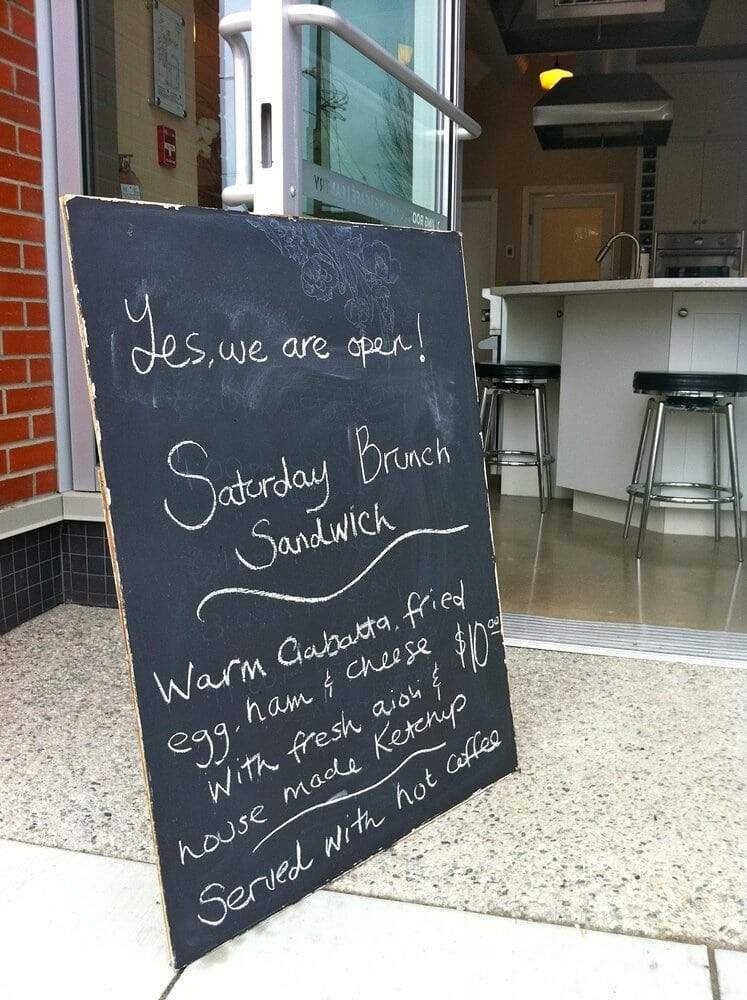 Yes, we are open!
Saturday Brunch
Sandwich
Warm Ciabatta, fried
egg, ham & cheese $10.00
with fresh aioli &
house made Ketchup
Served with hot coffee